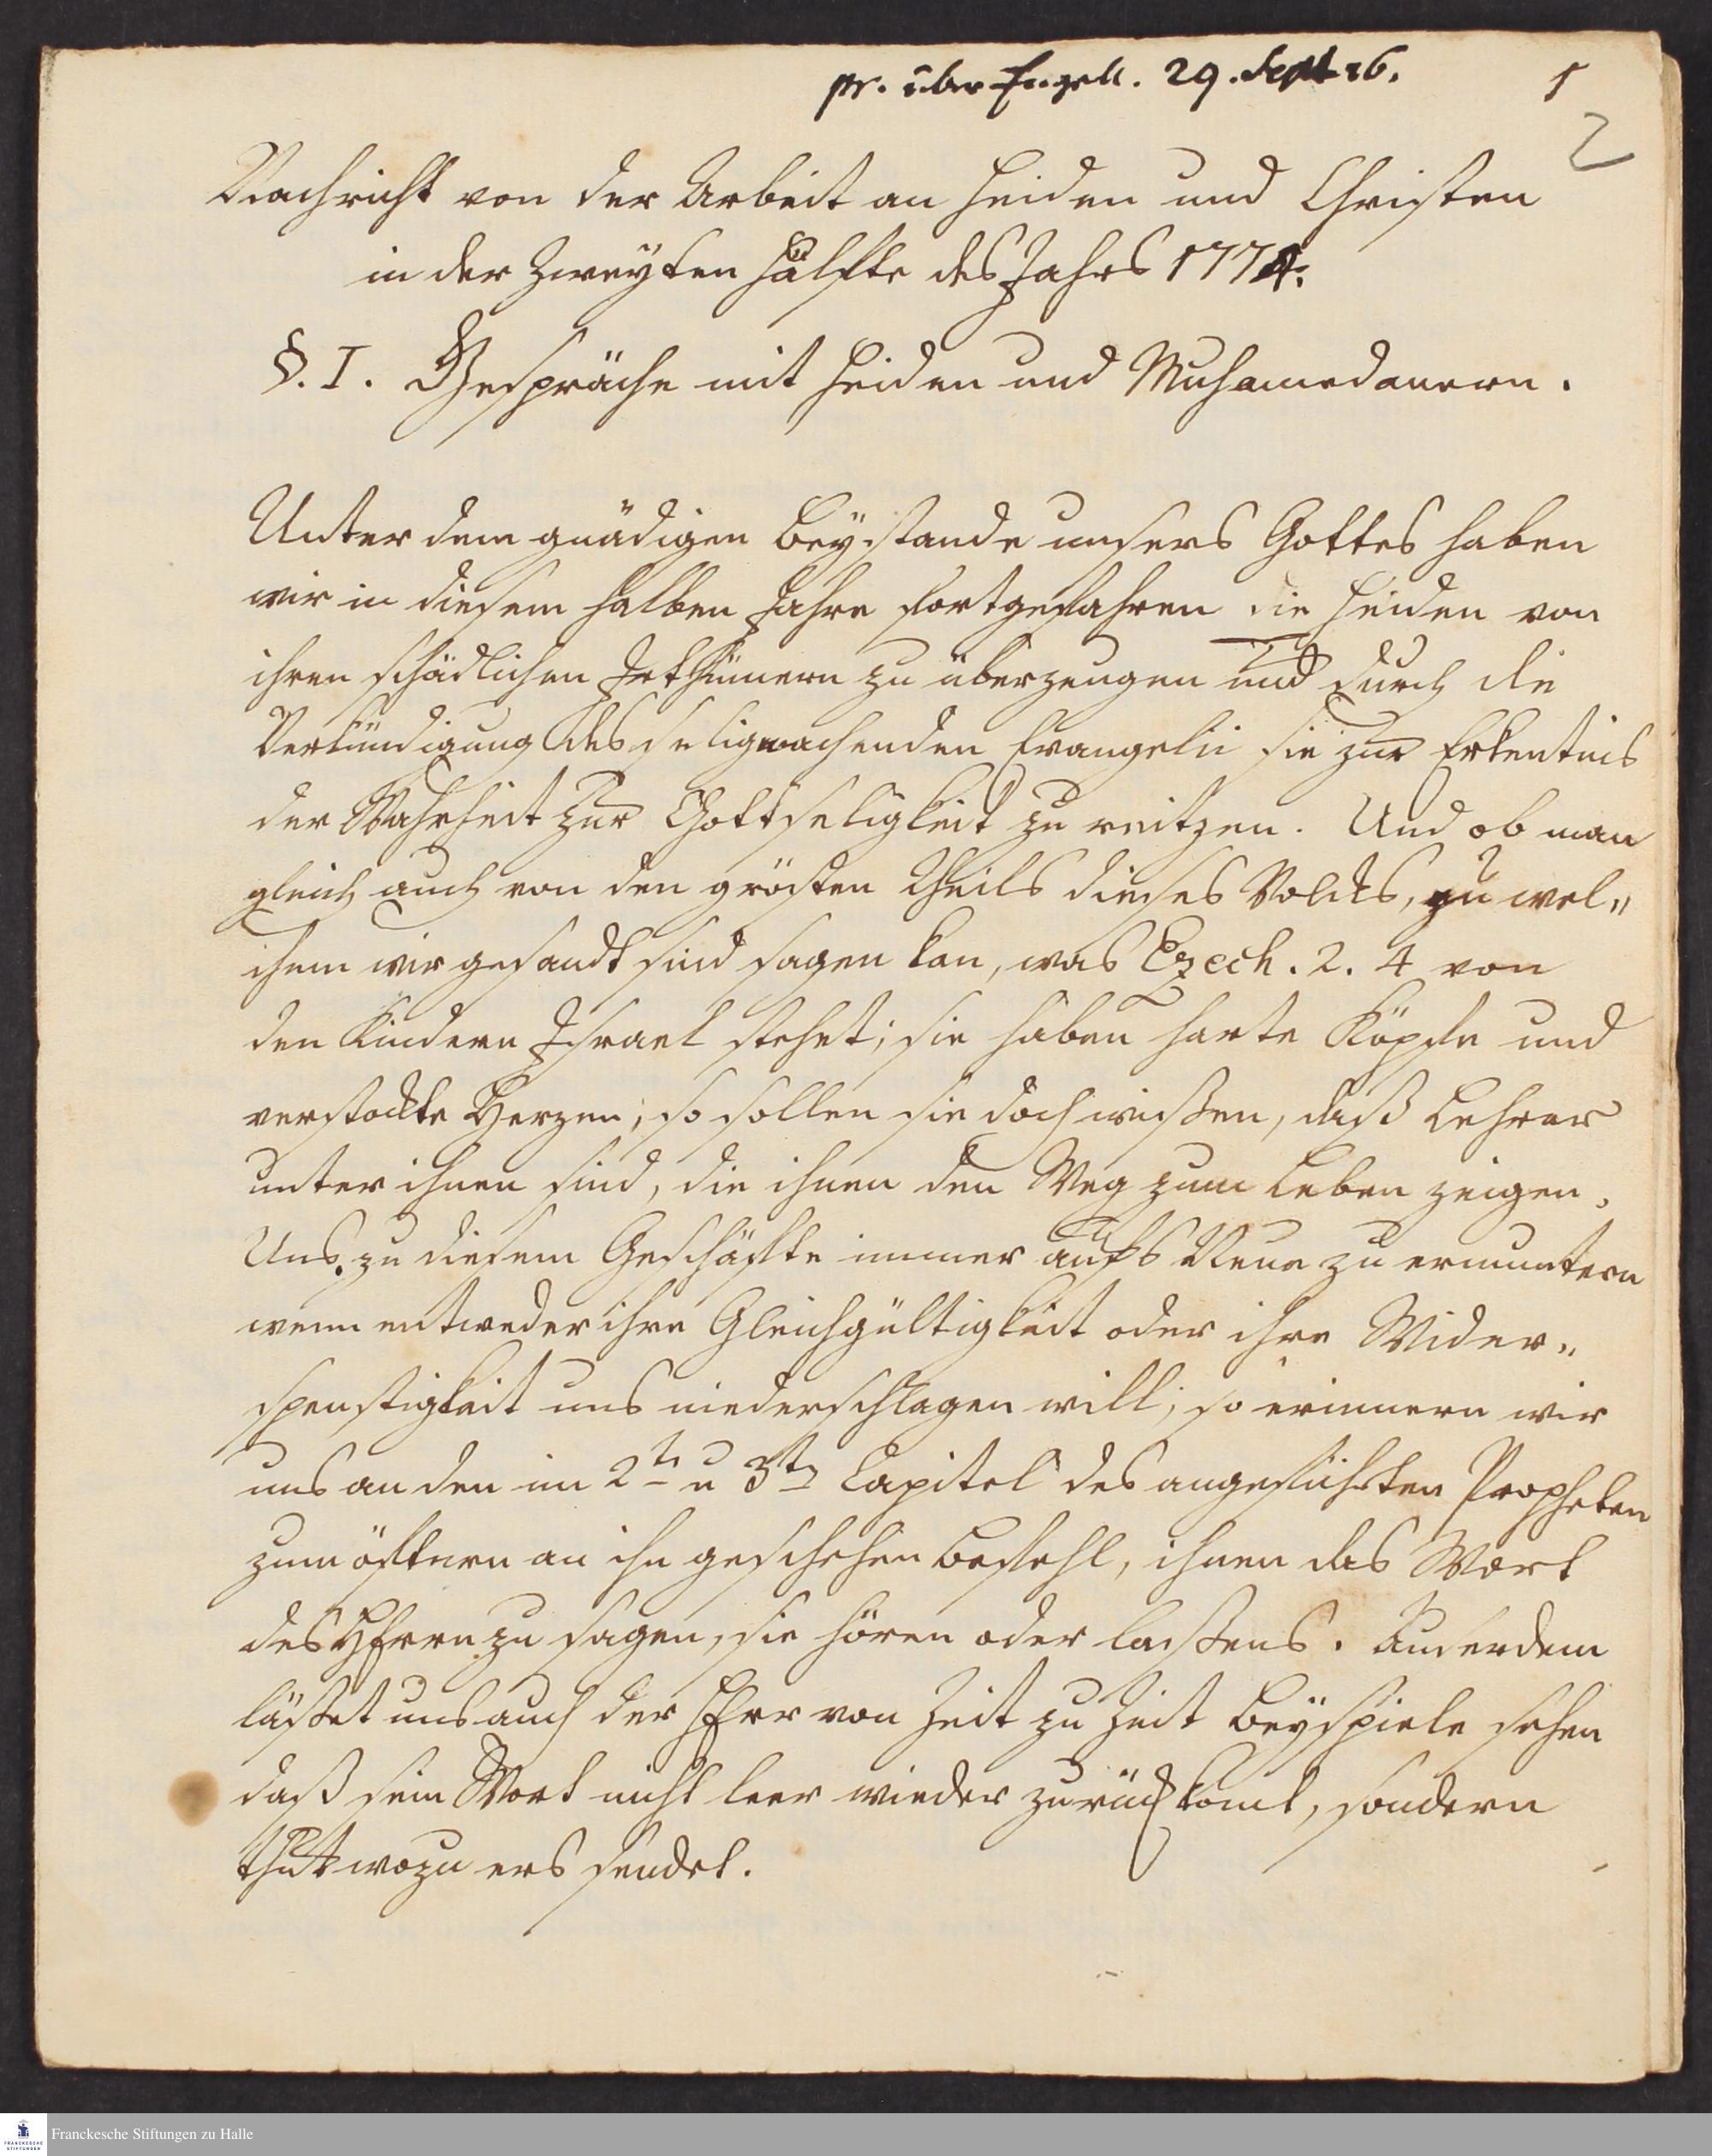 pr. über Engell. 29. Sept 76.
1
2
Nachricht von der Arbeit an Heiden und Christen
in der Zweyten Hälfte des Jahrs 1774.
§. I. Gespräche mit Heiden und Muhamedanern.
Unter dem gnädigen Beystande unsers Gottes haben
wir in diesem halben Jahre fortgefahren die Heiden von
ihren schädlichen Irthümern zu überzeugen und durch die
Verkündigung des seligmachenden Evangelii sie zur Erkentnis
der Wahrheit zur Gottseligkeit zu reitzen. Und ob man
gleich auch von den grösten Theils dieses Volcks, zu wel„
chem wir gesandt sind sagen kan, was Ezech. 2. 4 von
den Kindern Israel stehet; sie haben harte Köpfe und
verstockte Herzen; so sollen sie doch wißen, daß Lehrer
unter ihnen sind, die ihnen den Weg zum Leben zeigen.
Uns zu diesem Geschäfte immer aufs Neue zu ermuntern
wenn entweder ihre Gleichgültigkeit oder ihre Wider„
spenstigkeit uns niederschlagen will; so erinnern wir
uns an den im 2tn u 3tn Capitel des angeführten Propheten
zum öftern an ihn geschehen Befehl, ihnen das Wort
des HErrn zu sagen, sie hören oder laßens. Auserdem
läßet uns auch der HErr von Zeit zu Zeit Beyspiele sehen
daß sein Wort nicht leer wieder zurück komt, sondern
thut wozu ers sendet.
Franckesche Stiftungen zu Halle
FRANCKESCHE STIFTUNGEN